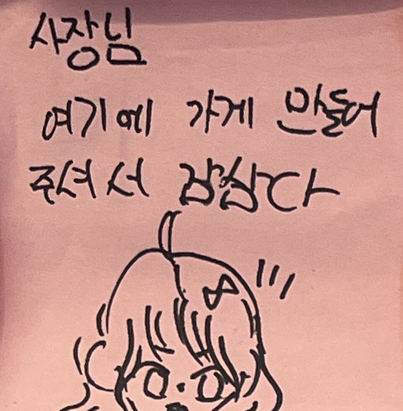 사장님
여기에 가게 만들어
주셔서 감삼다